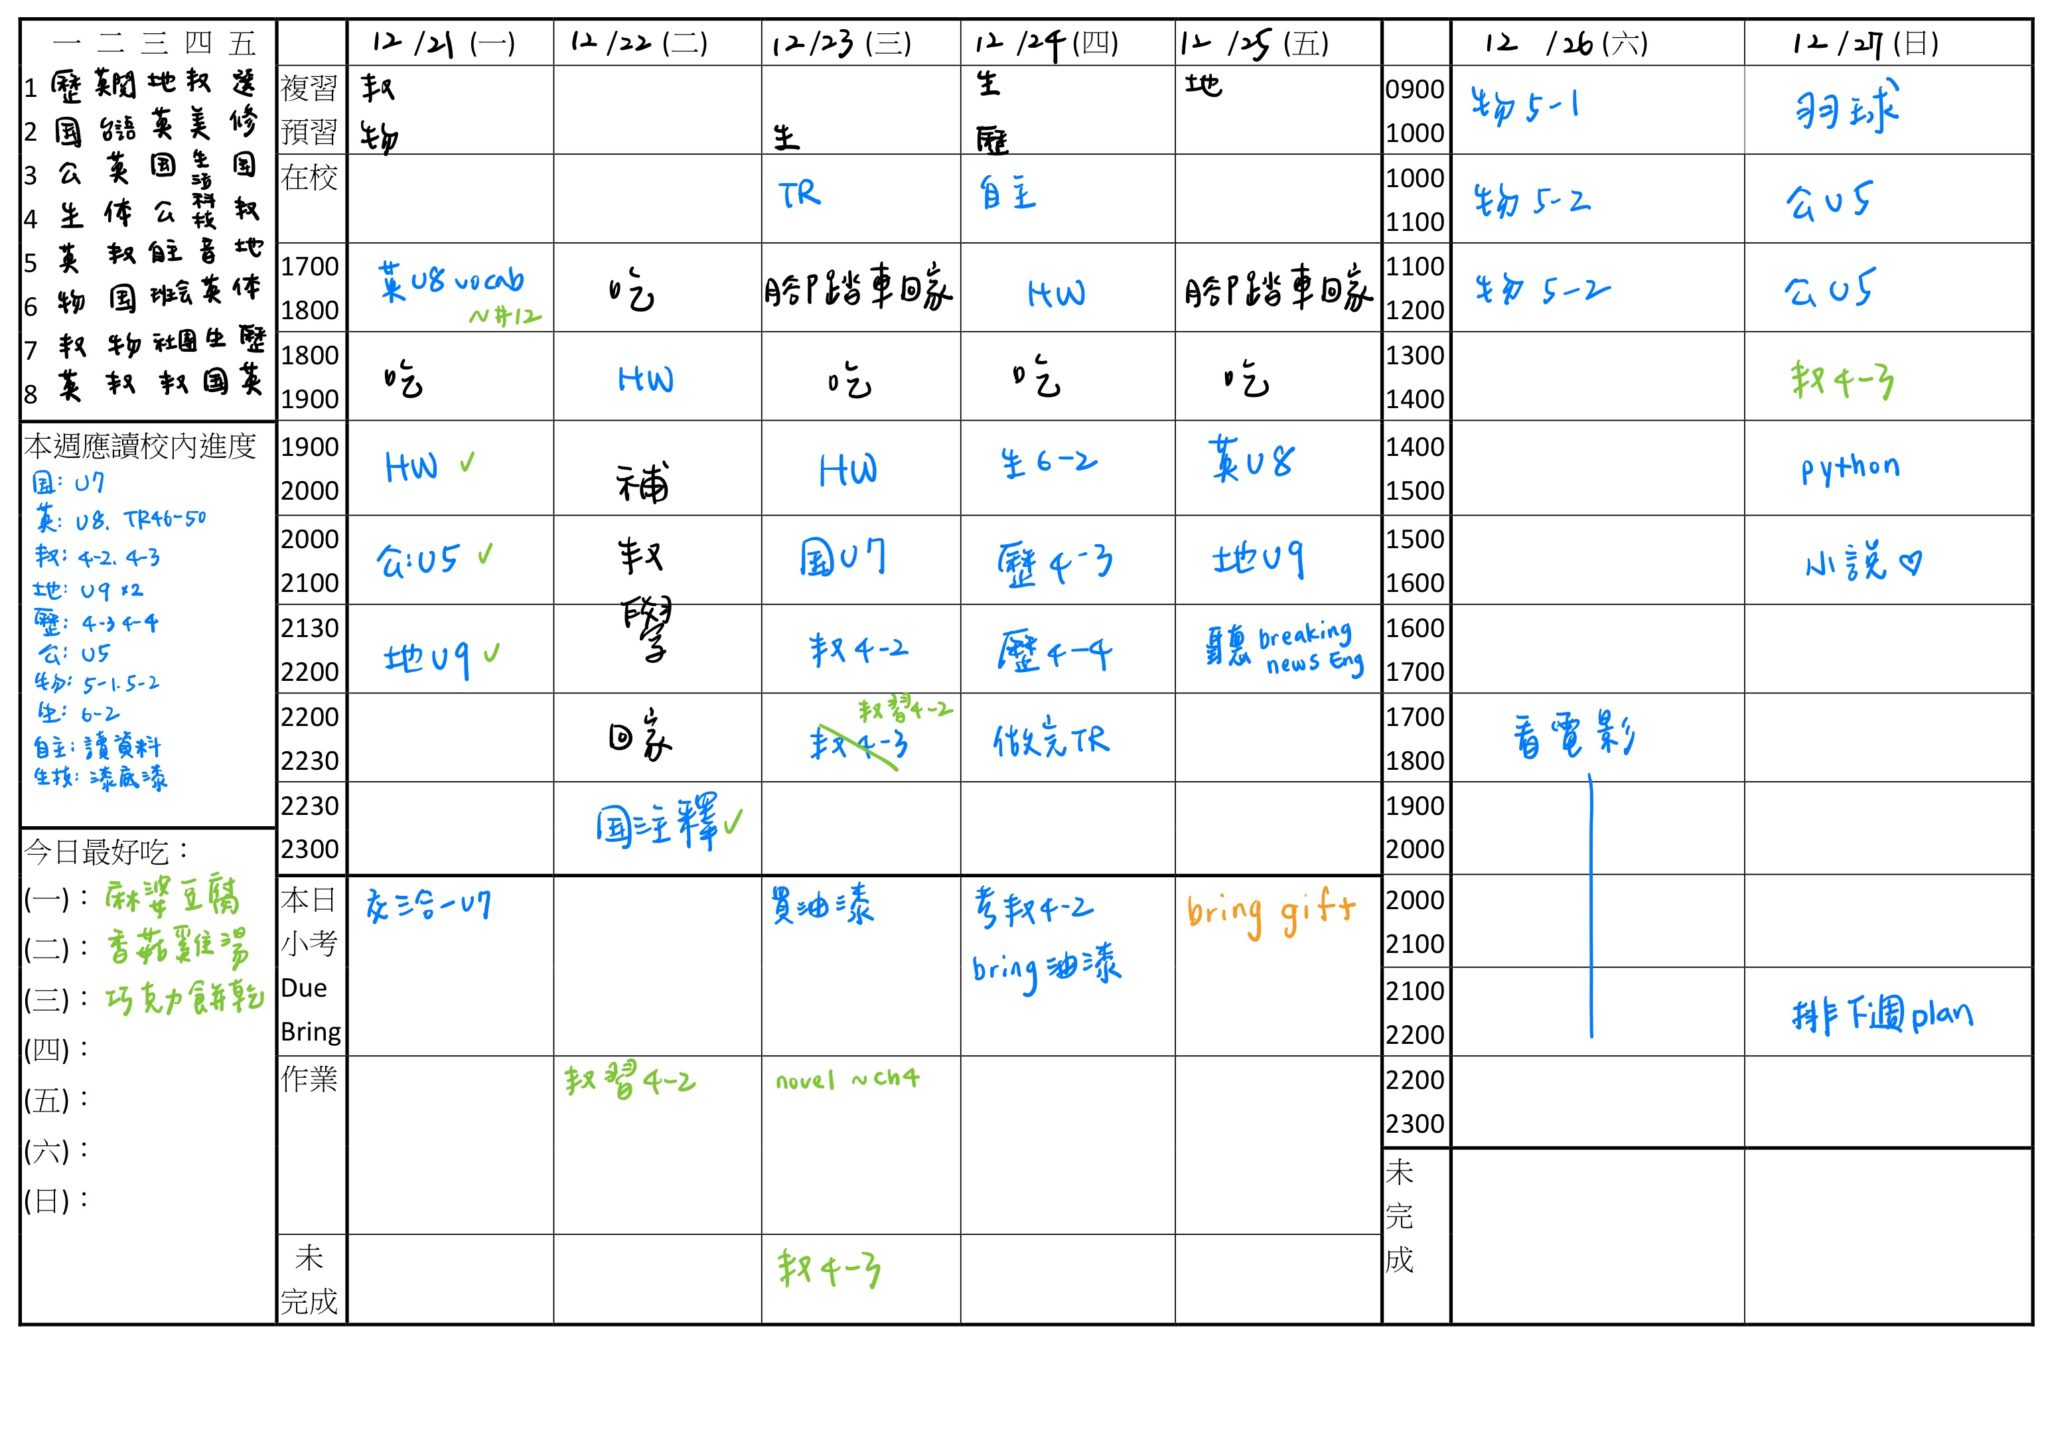 一 二 三 四 五
1 歷 英閱 地 数 選
2 国 台語 英 美 修
3 公 英 国 生活 国
4 生 体 公 科技 数
5 英 数 自主 音 地
6 物 国 班会 英 体
7 数 物 社団 生 歷
8 英 数 数 国 英
本週應讀校內進度
国: U7
英: U8. TR46-50
数: 4-2. 4-3
地: U9 x2
歷: 4-3 4-4
公: U5
物: 5-1. 5-2
生: 6-2
自主: 讀資料
生技: 漆底漆
今日最好吃：
(一)：麻婆豆腐
(二)：香菇雞湯
(三)：巧克力餅乾
(四)：
(五)：
(六)：
(日)：
12/21(一) 12/22(二) 12/23(三) 12/24(四) 12/25(五)
複習 数 生 地
預習 物 生 歷
在校 TR 自主
1700 1800 英U8 vocab ~#12 吃 腳踏車回家 HW 腳踏車回家
1800 1900 吃 HW 吃 吃 吃
1900 2000 HW ✓ 補 HW 生6-2 英U8
2000 2100 公:U5 ✓ 数 国U7 歷4-3 地U9
2130 2200 地U9 ✓ 學 数4-2 歷4-4 聽 breaking news Eng
2200 2230 回家 数習4-2 数4-3 做完TR
2230 2300 国注釋 ✓
本日 交三合一U7 買油漆 考数4-2 bring gift
小考 bring 油漆
Due
Bring
作業 数習4-2 novel ~ch4
未 数4-3
完成
12/26(六) 12/27(日)
0900 1000 物5-1 羽球
1000 1100 物5-2 公U5
1100 1200 物5-2 公U5
1300 1400 数4-3
1400 1500 python
1500 1600 小說♡
1600 1700
1700 1800 看電影
1900 2000
2000 2100
2100 2200 排下週plan
2200 2300
未
完
成